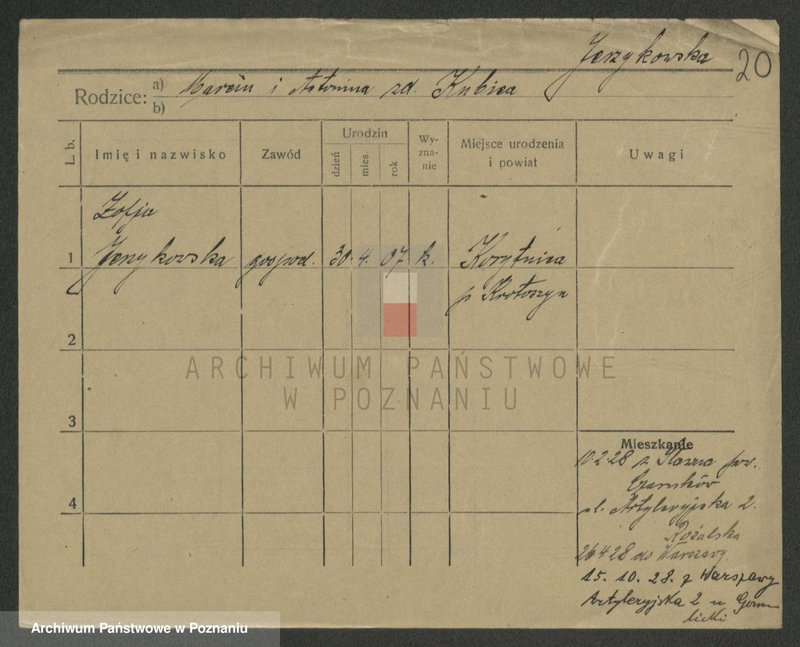 Jerzykowska
20
Rodzice: a) b) Marcin i Antonina zd. Kubica
L. b.
Imię i nazwisko
Zawód
Urodzin
dzień
mies.
rok
Wy-
zna-
nie
Miejsce urodzenia
i powiat
Uwagi
Zofja
1 Jerzykowska gospod. 30. 4. 07. k. Korytnica
p. Krotoszyn
2
ARCHIWUM PAŃSTWOWE
W POZNANIU
3
Mieszkanie
10.2.28 z pow.
Czarnków
ul. Artyleryjska 2.
4
26.4.28 do Warszawy
15. 10. 28. z Warszawy
Artyleryjska 2 u
Archiwum Państwowe w Poznaniu